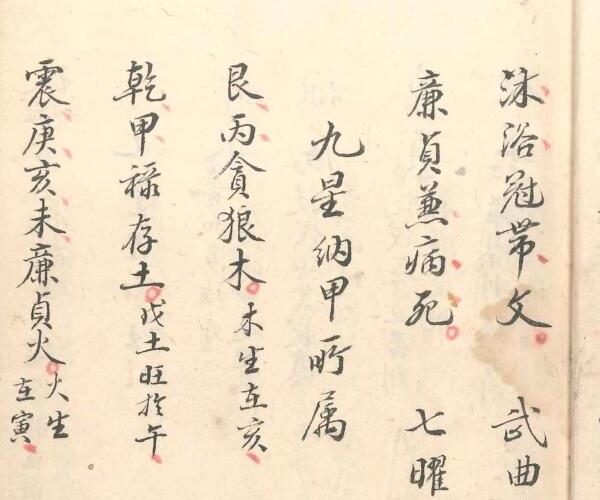 沐浴冠帶文　武曲
廉貞兼病死　七曜
九星納甲所属
艮丙貪狼木木生在亥
乾甲禄存土戊土旺於午
震庚亥未廉貞火火生在寅